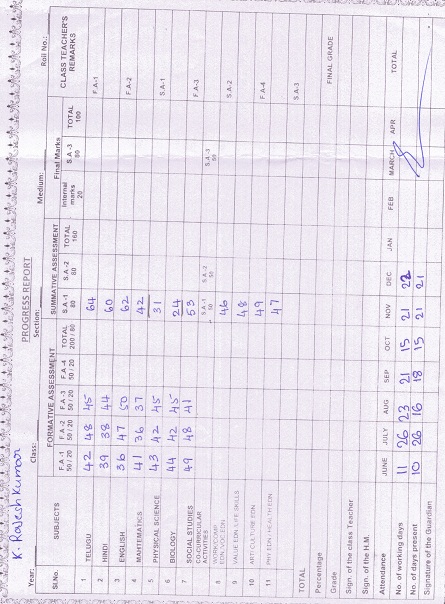 K. Rajesh Kumar
PROGRESS REPORT
Year: Class: Section: Medium: Roll No.:
Sl.No. SUBJECTS FORMATIVE ASSESSMENT SUMMATIVE ASSESSMENT Final Marks CLASS TEACHER'S REMARKS
F.A-1 50/20 F.A-2 50/20 F.A-3 50/20 F.A-4 50/20 TOTAL 200/80 S.A-1 80 S.A-2 80 TOTAL 160 Internal marks 20 S.A-3 80 TOTAL 100
1 TELUGU 42 48 45 64 F.A-1
2 HINDI 39 38 44 60
3 ENGLISH 36 47 50 62 F.A-2
4 MAHTEMATICS 41 36 37 42
5 PHYSICAL SCIENCE 43 42 45 31 S.A-1
6 BIOLOGY 44 42 45 24
7 SOCIAL STUDIES 49 48 41 53 F.A-3
CO-CURRICULAR ACTIVITIES S.A-1 50 S.A-2 50 S.A-3 50
8 WORK/COMP EDN/VOC.EDN 46 S.A-2
9 VALUE EDN./LIFE SKILLS 48
10 ART/CULTURE EDN 49 F.A-4
11 PHY.EDN/HEALTH EDN 47
TOTAL S.A-3
Percentage
Grade FINAL GRADE
Sign. of the class Teacher
Sign. of the H.M.
Attendance JUNE JULY AUG SEP OCT NOV DEC JAN FEB MARCH APR TOTAL
No. of working days 11 26 23 21 15 21 22
No. of days present 10 26 16 18 15 21 21
Signature of the Guardian